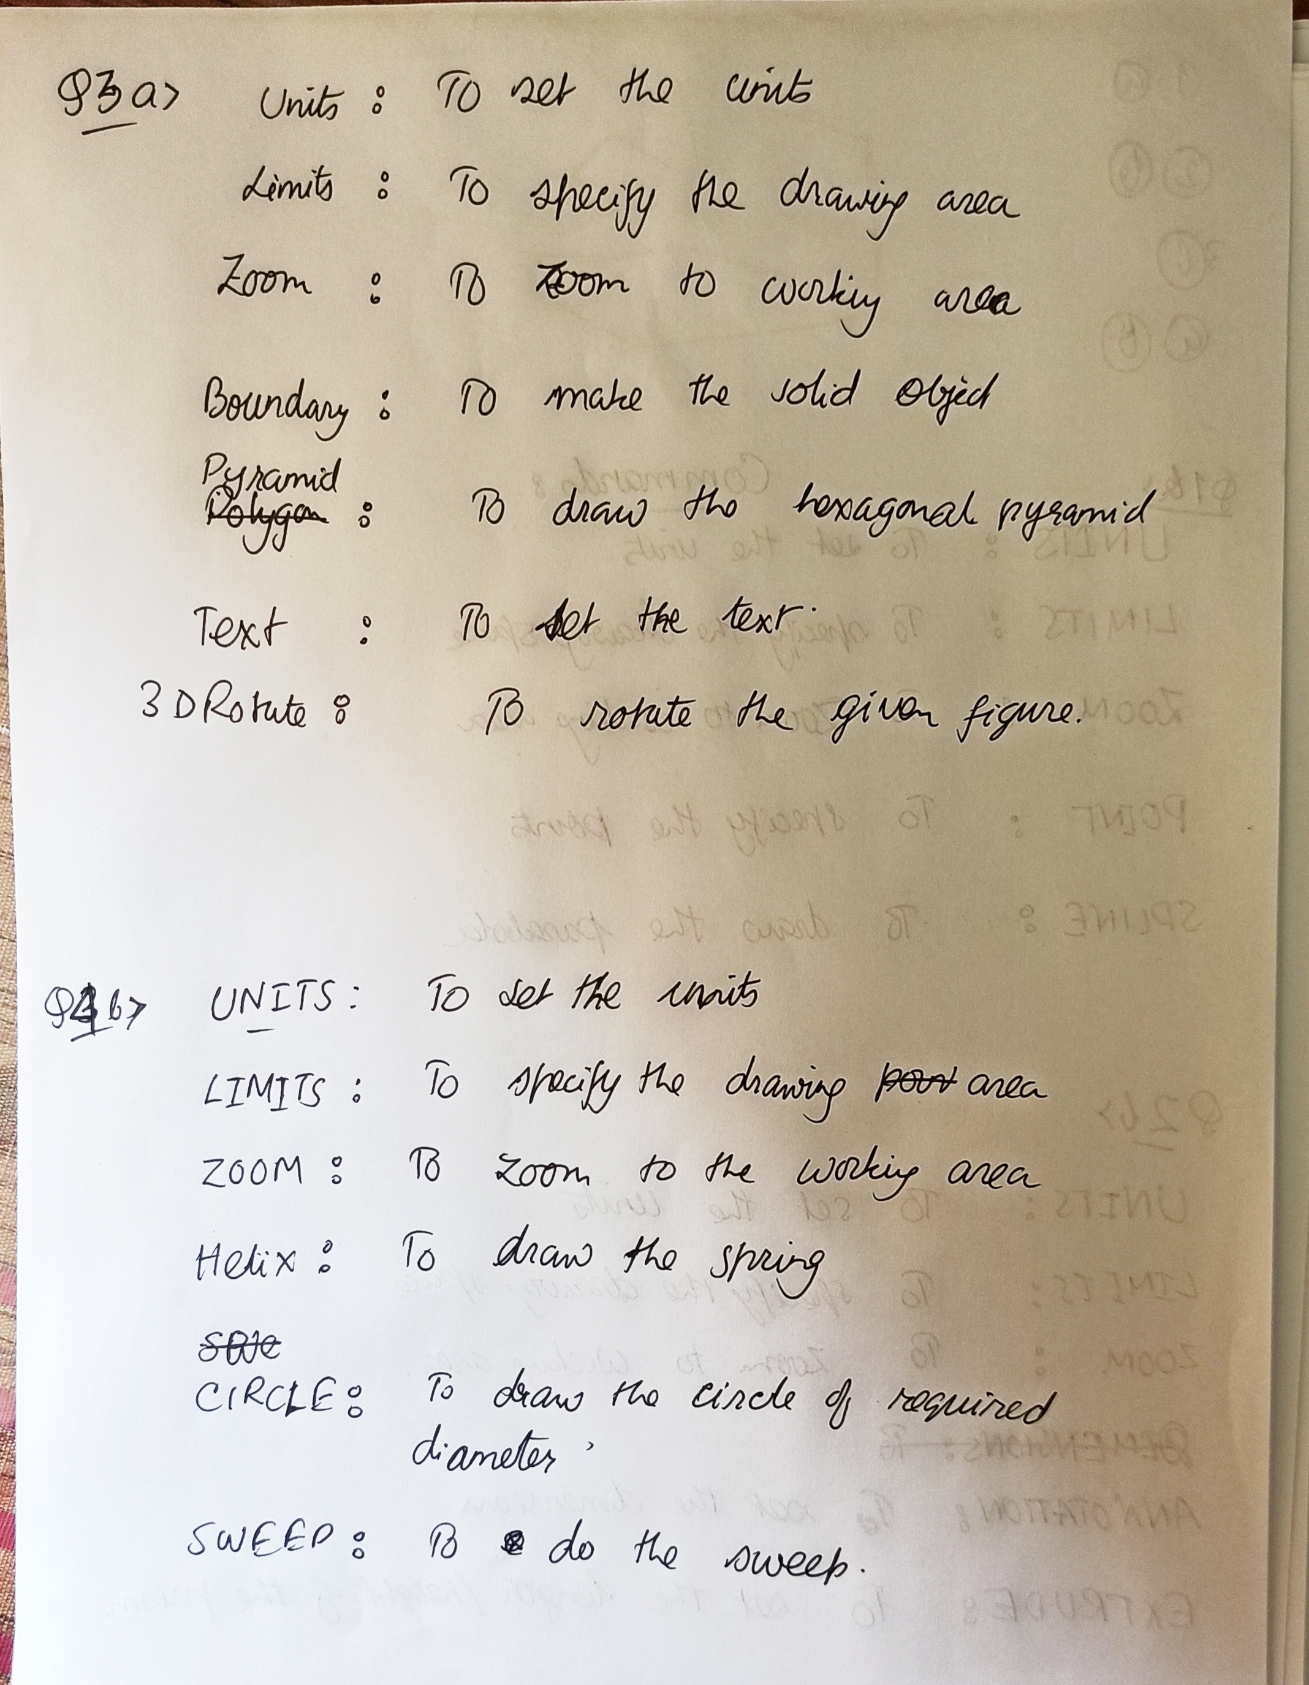 Q3 a> Units : To set the units
Limits : To specify the drawing area
Zoom : To zoom to working area
Boundary : To make the solid object
Pyramid
Polygon : To draw the hexagonal pyramid
Text : To set the text.
3DRotate : To rotate the given figure.
Q4 b> UNITS : To set the units
LIMITS : To specify the drawing area
ZOOM : To zoom to the working area
Helix : To draw the spring
CIRCLE : To draw the circle of required
diameter
SWEEP : To do the sweep.